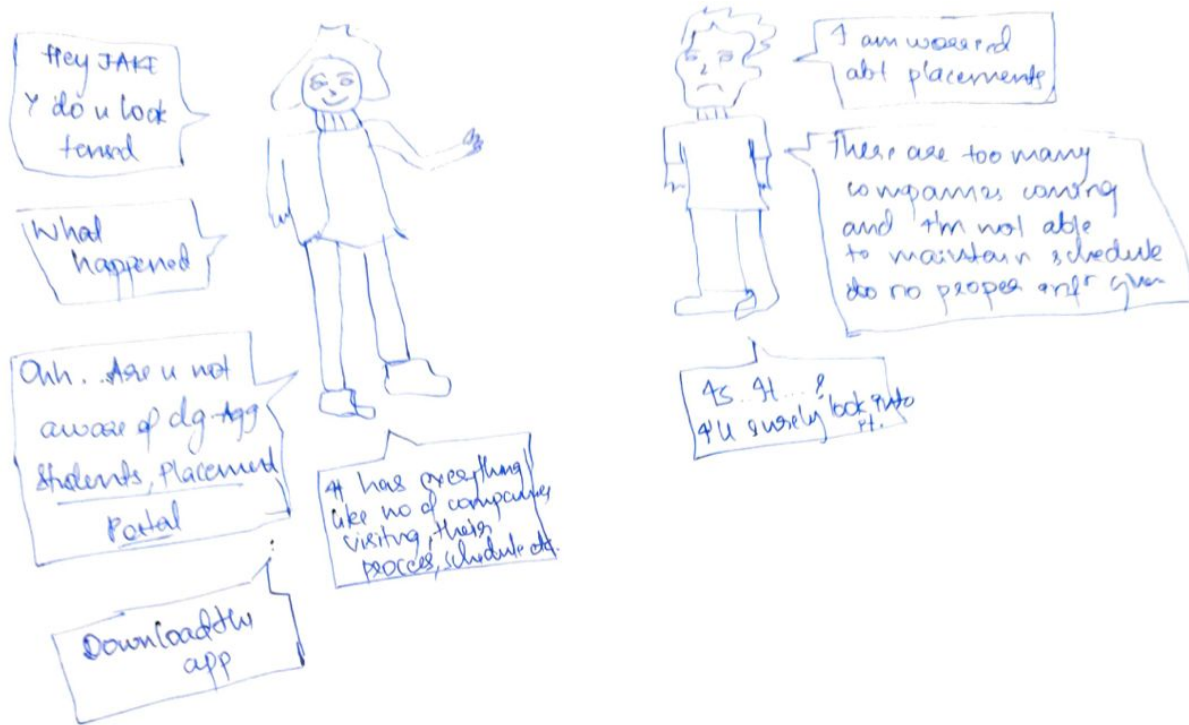 Hey JAKE
Y do u look
tensed
What
happened
Ohh.. Are u not
aware of
Students, Placement
Portal
It has everything
like no of companies
visiting, their
process, schedule etc.
Download the
app
I am worried
abt placements
There are too many
companies coming
and I'm not able
to maintain schedule
do no proper given
Is It...?
I'll surely look into
it.